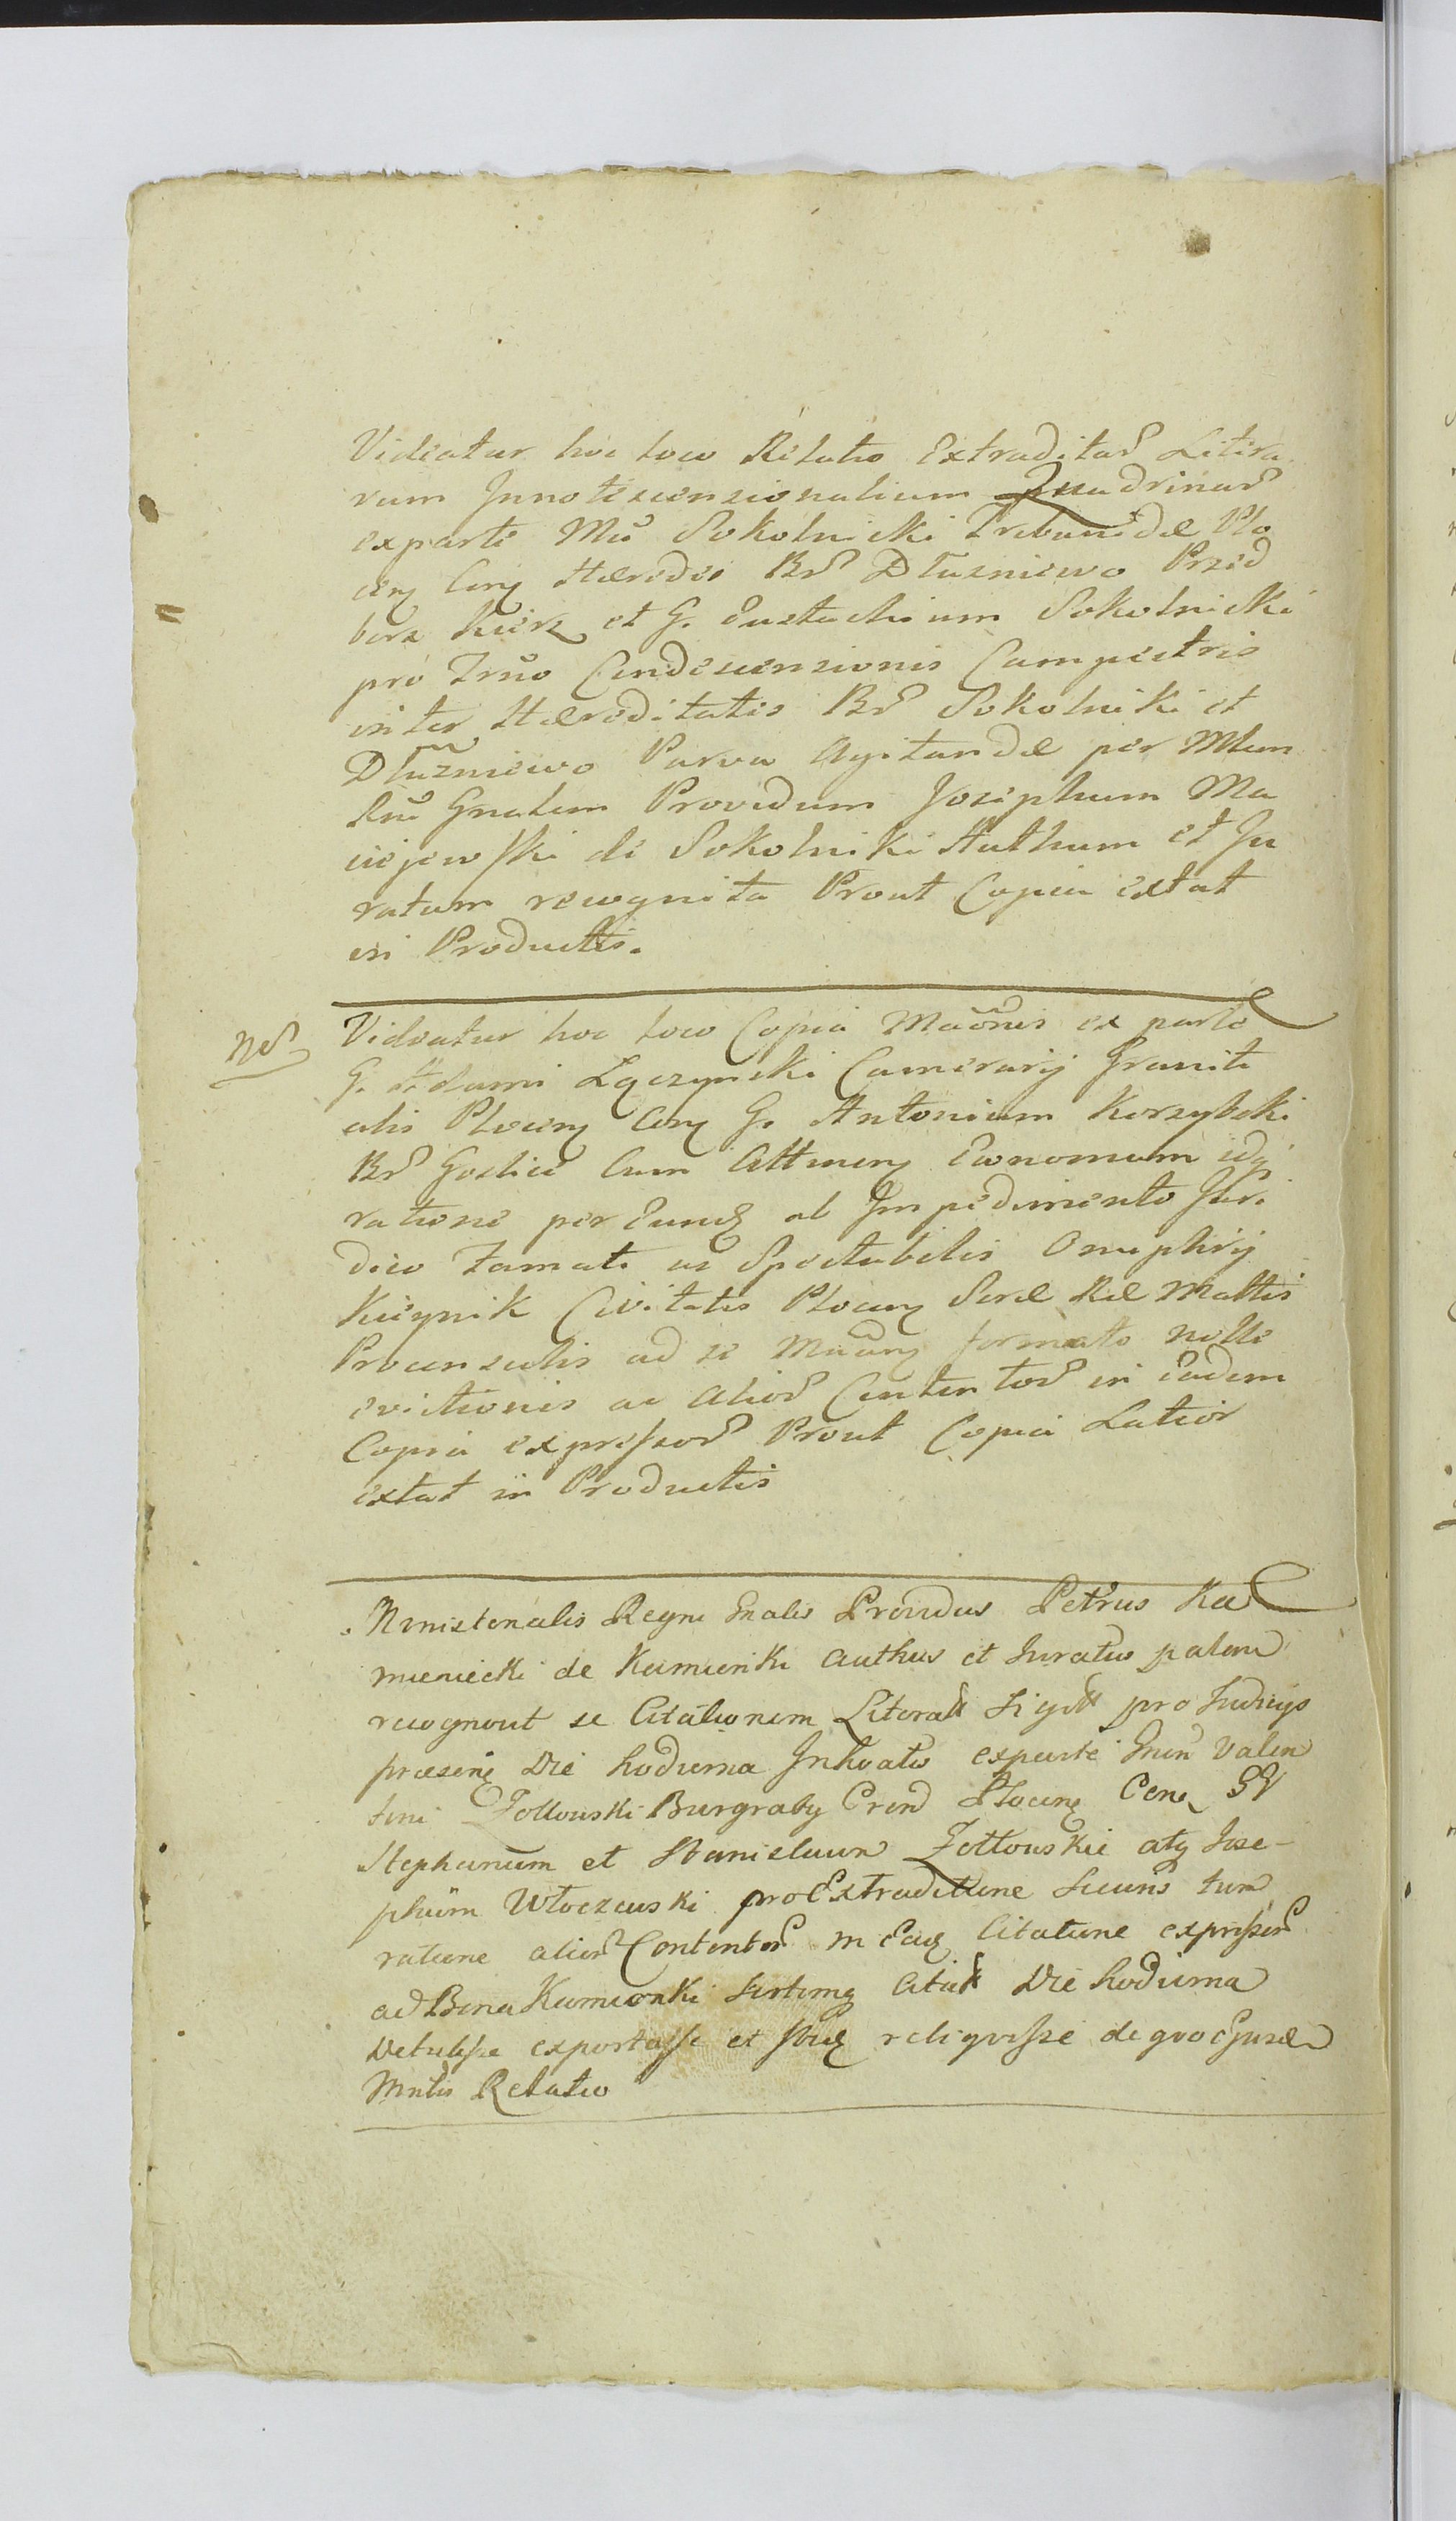 Videatur hoc loco Relatio Extraditar Litera
rum Innotescensionalium Quadrinar
ex parte Mci Sokolnicki Tribuni de Plo
cen Con Hæredes Br Dłuzniewo Przed
borz Kierz et G. Eustachium Sokolnicki
pro Trno Condescensionis Campestris
inter Hæreditatis Br Sokolniki et
Dłuzniewo Parva Agitandæ per Mlem
Rni Gnalem Providum Josephum Ma
ciejewski de Sokolniki Authum et Ju
ratum recognita Prout Copia extat
in Productis.
Videatur hoc loco Copia Maonis ex parte
G. Adami Łączynski Camerarij Graniti
alis Plocen Con G. Antonium Korzybski
Br Goslice Cum Attinen Economum idq
ratione per Eund ab Impedimento Juri
dico Famati ac Spectabilis Onuphrij
Kieynik Civitatis Plocen Sacræ Ræ Mattis
Proconsulis ad se Maonem formato nolle
evictionis ac Alior Contentor in Eadem
Copia expressor Prout Copia Latior
extat in Productis
Ministerialis Regni Gnalis Providus Petrus Ka
mieniecki de Kamionki Authus et Juratus palam
recognovit se Citationem Literalt Sigill pro Judicijs
præsen Die hodierna Inchoatis ex parte Gnen Valen
tini Zołtowski Burgraby Cren Plocen Con GG
Stephanum et Stanislaum Zołtowskie atq Jose-
phum Włoczewski pro Extraditione
ratione alior Contentor in Ead Citatione expressor
ad Bona Kamionki Die hodierna
Detulisse exportasse et Ibid reliquisse de quo Ejusdem
Mntlis Relatio